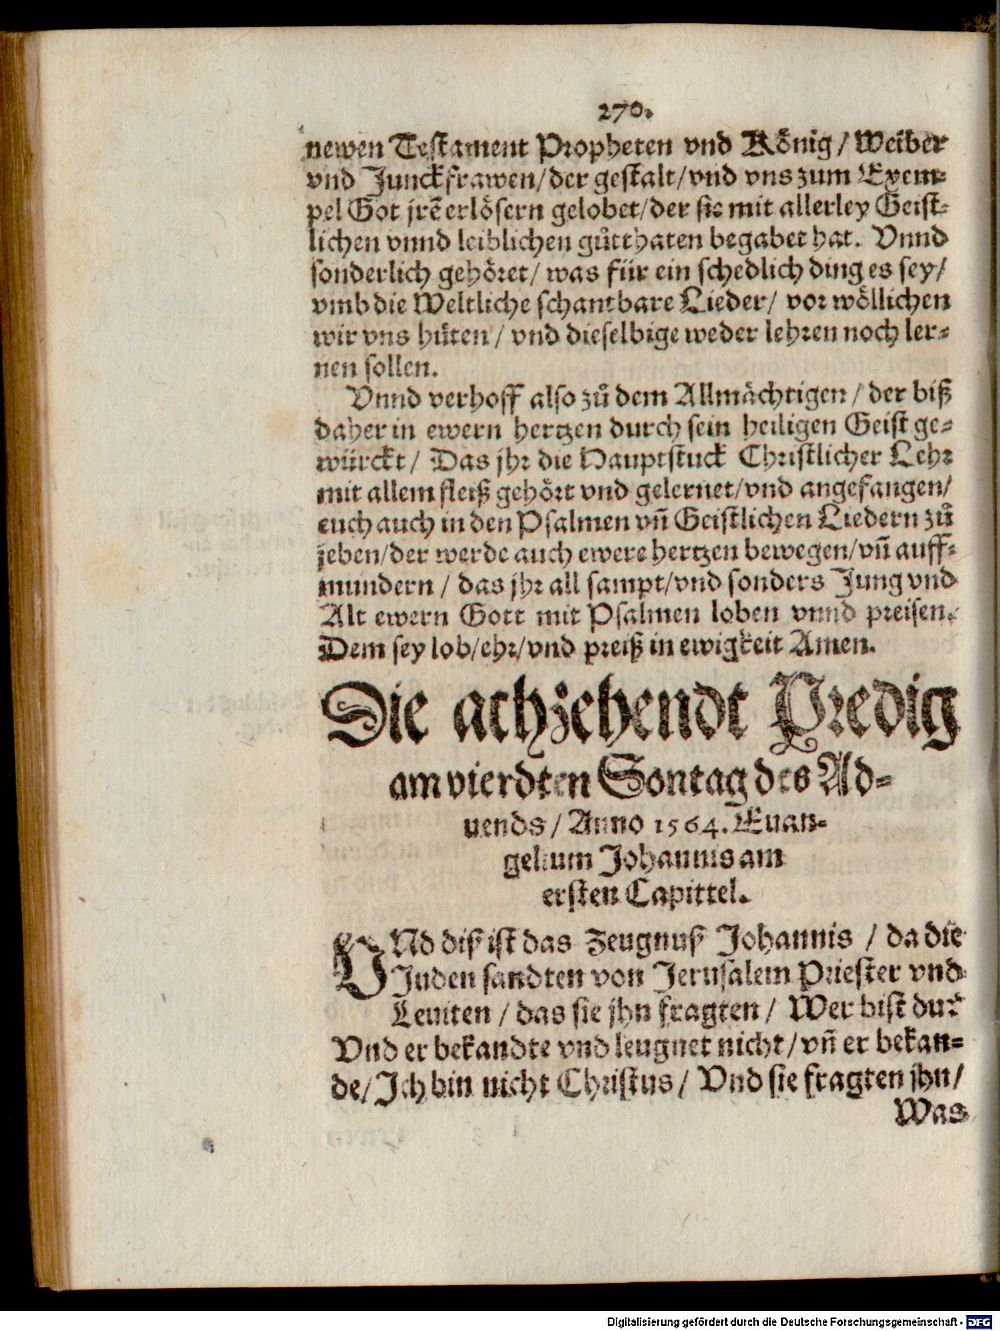 270.
newen Testament Propheten vnd König / Weiber
vnd Junckfrawen/der gestalt/vnd vns zum Exem⸗
pel Got jrẽ erlösern gelobet/der sie mit allerley Geist⸗
lichen vnnd leiblichen gůtthaten begabet hat. Vnnd
sonderlich gehöret/ was für ein schedlich ding es sey/
vmb die Weltliche schantbare Lieder/ vor wöllichen
wir vns hüten / vnd dieselbige weder lehren noch ler⸗
nen sollen.
Vnnd verhoff also zů dem Allmächtigen / der biß
daher in ewern hertzen durch sein heiligen Geist ge⸗
würckt / Das jhr die Hauptstuck Christlicher Lehr
mit allem fleiß gehört vnd gelernet/vnd angefangen/
euch auch in den Psalmen vñ Geistlichen Liedern zů
jeben/der werde auch ewere hertzen bewegen/vñ auff⸗
mundern / das jhr all sampt/vnd sonders Jung vnd
Alt ewern Gott mit Psalmen loben vnnd preisen.
Dem sey lob/ehr/vnd preiß in ewigkeit Amen.
Die achzehendt Predig
am vierdten Sontag des Ad⸗
uends / Anno 1564. Euan⸗
gelium Johannis am
ersten Capittel.
VNd diß ist das Zeugnuß Johannis / da die
Juden sandten von Jerusalem Priester vnd
Leuiten / das sie jhn fragten / Wer bist du?
Vnd er bekandte vnd leugnet nicht/vñ er bekan⸗
de/Ich bin nicht Christus / Vnd sie fragten jhn/
Was
Digitalisierung gefördert durch die Deutsche Forschungsgemeinschaft - DFG